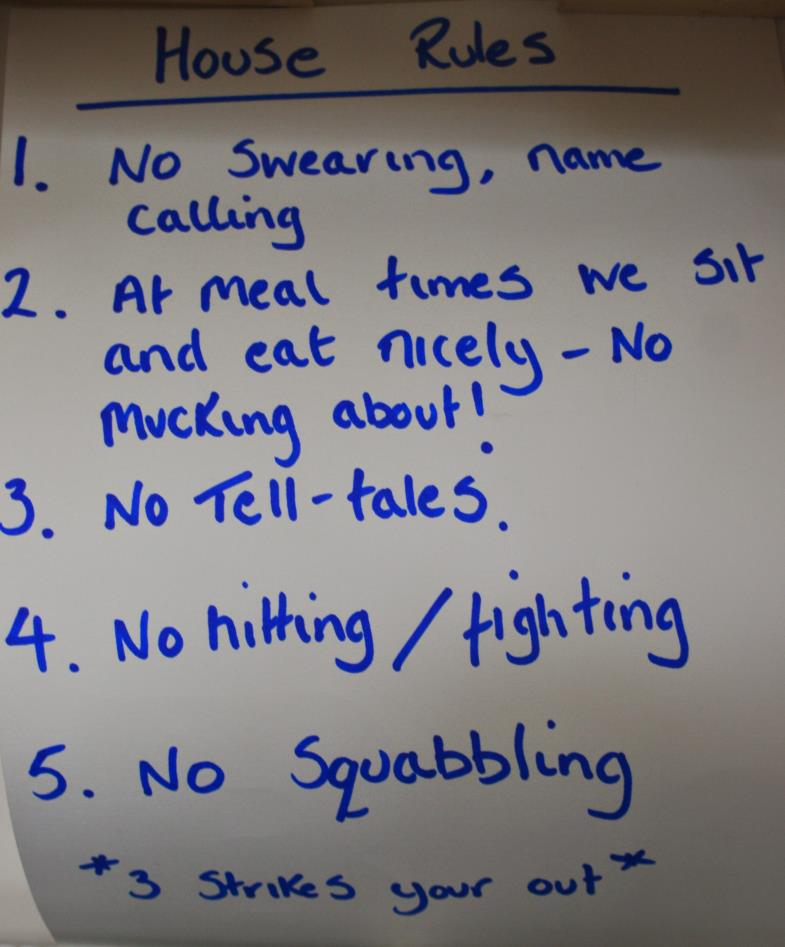 House Rules
1. No Swearing, name
calling
2. At meal times we sit
and eat nicely - No
mucking about!
3. No Tell-tales.
4. No hitting / fighting
5. No Squabbling
*3 Strikes your out*